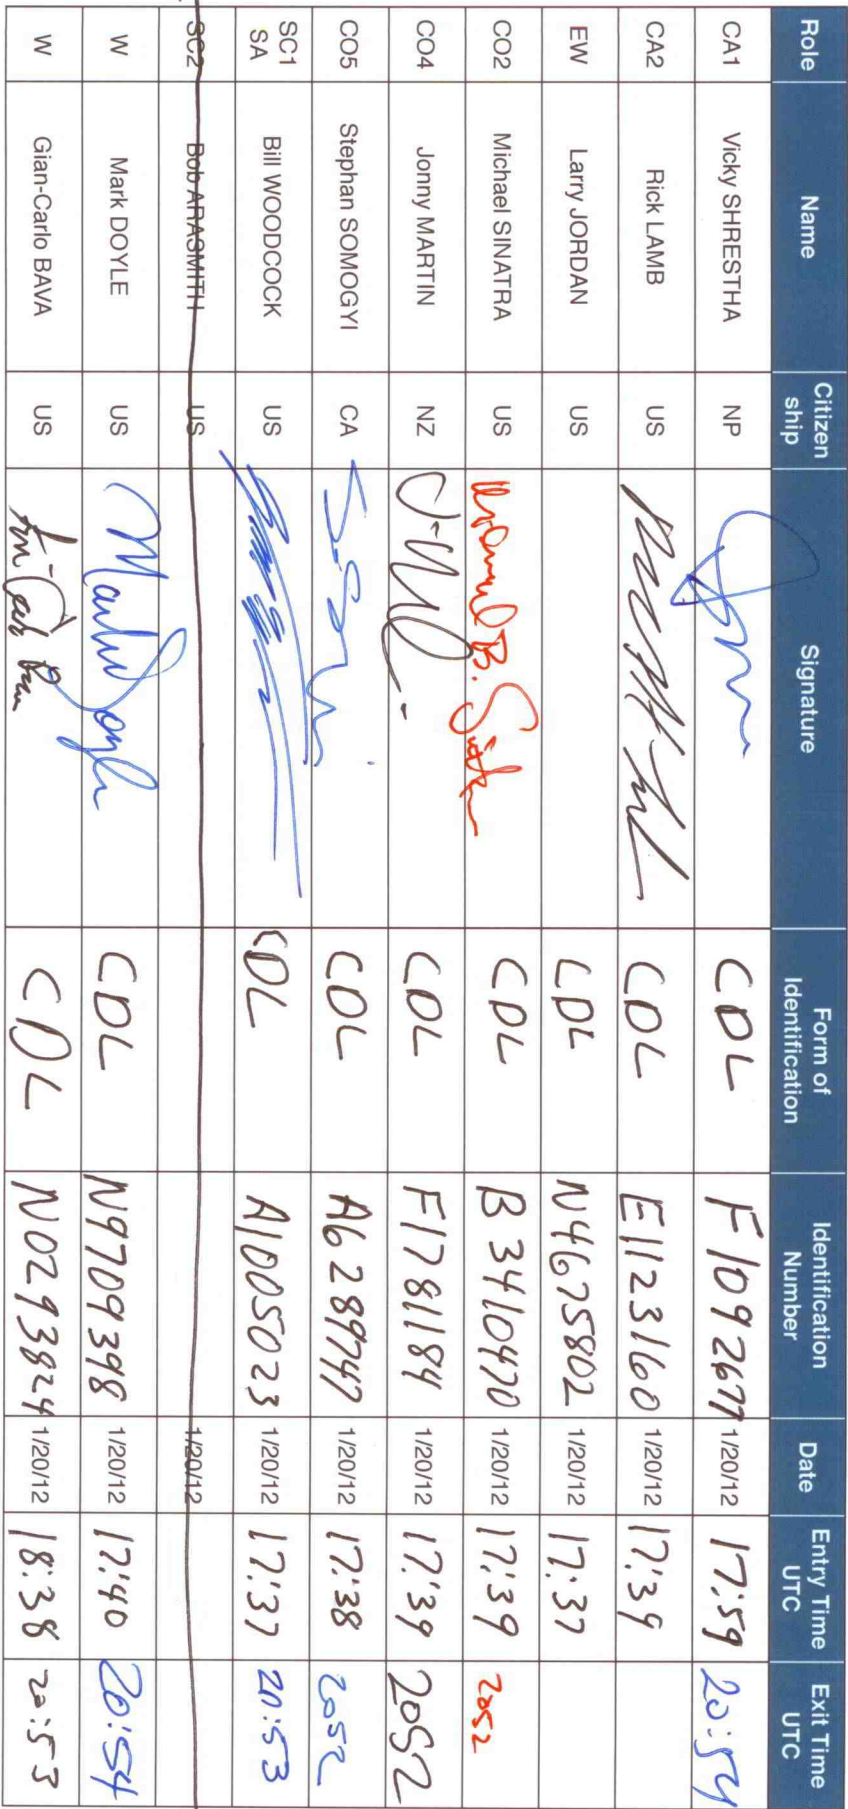 Role Name Citizen ship Signature Form of Identification Identification Number Date Entry Time UTC Exit Time UTC
CA1 Vicky SHRESTHA NP CDL F1092677 1/20/12 17:59 20:54
CA2 Rick LAMB US CDL E1123160 1/20/12 17:39
EW Larry JORDAN US CDL N4675802 1/20/12 17:37
CO2 Michael SINATRA US Michael B. Sinatra CDL B3410470 1/20/12 17:39 2052
CO4 Jonny MARTIN NZ CDL F1781184 1/20/12 17:39 2052
CO5 Stephan SOMOGYI CA CDL A6289747 1/20/12 17:38 2052
SC1 SA Bill WOODCOCK US CDL A1005023 1/20/12 17:37 20:53
SC2 Bob ARASMITH US 1/20/12
W Mark DOYLE US Mark Doyle CDL N9709398 1/20/12 17:40 20:54
W Gian-Carlo BAVA US CDL N0293824 1/20/12 18:38 20:53